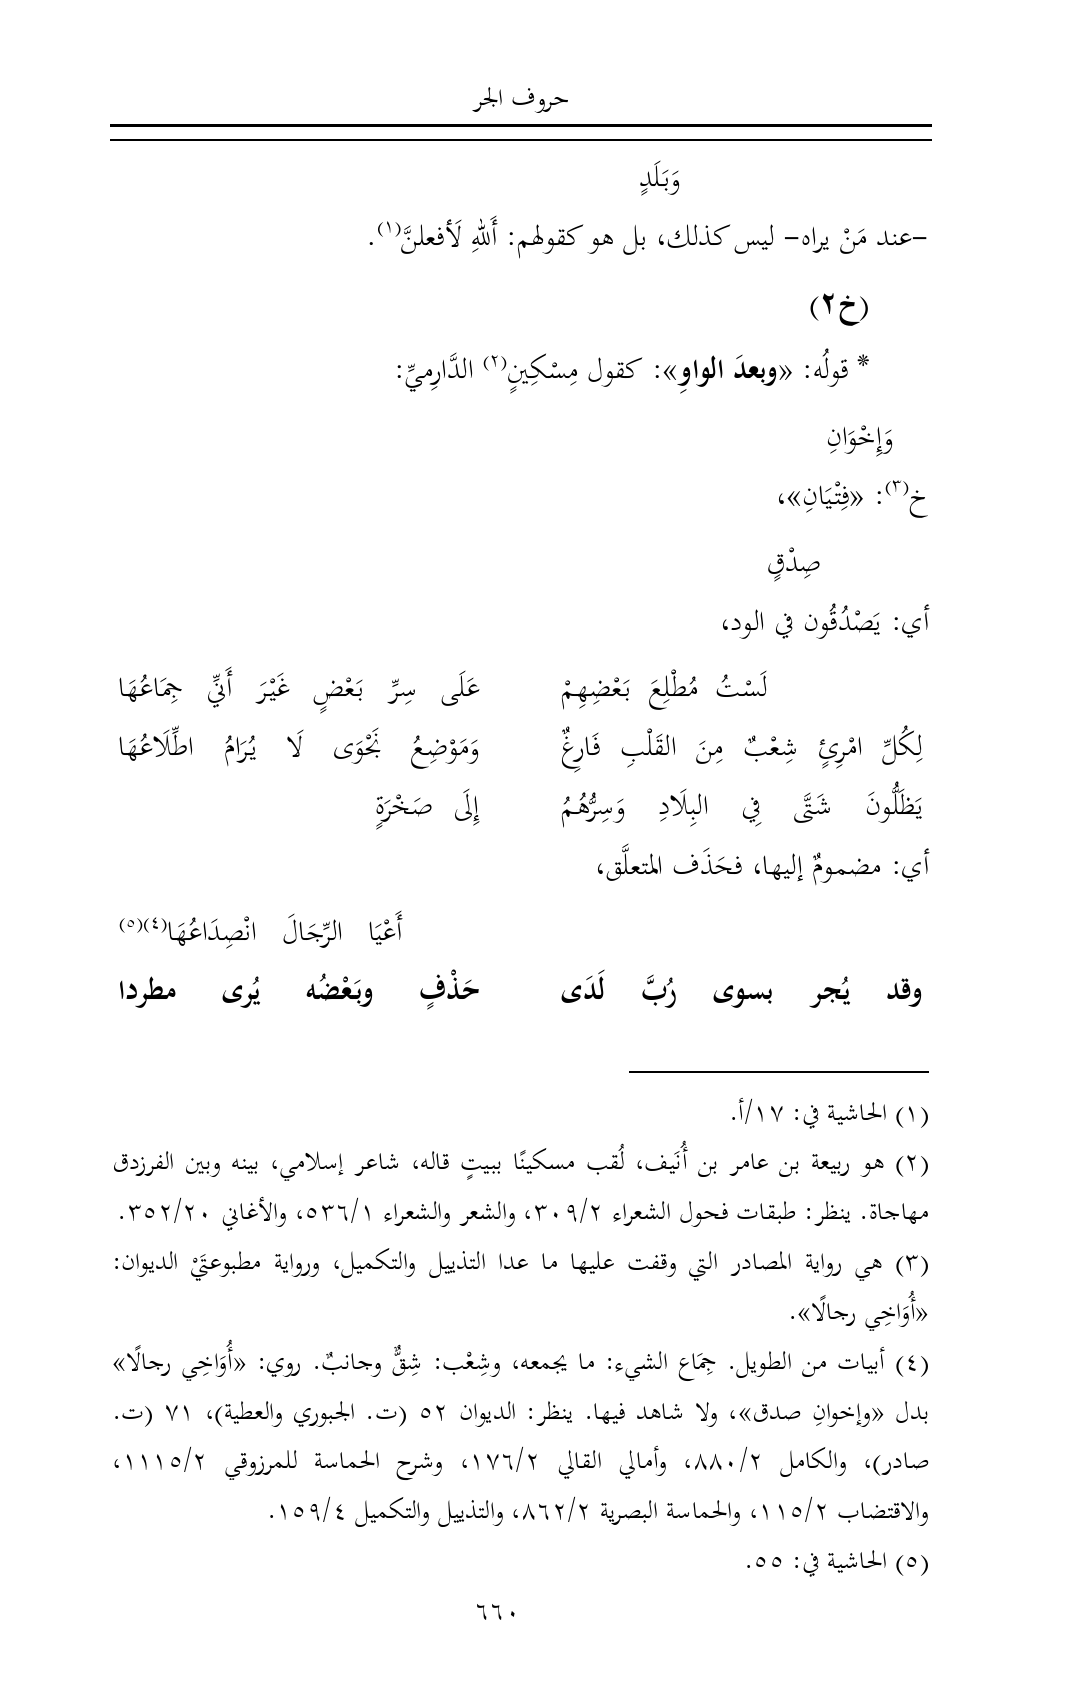 حروف الجر
وَبَلَدٍ
-عند مَنْ يراه- ليس كذلك، بل هو كقولهم: أَللهِ لَأفعلنَّ(١).
(خ٢)
* قولُه: «وبعدَ الواوِ»: كقول مِسْكِينٍ(٢) الدَّارِميِّ:
وَإِخْوَانِ
خ(٣): «فِتْيَانِ»،
صِدْقٍ
أي: يَصْدُقُون في الود،
لَسْتُ مُطْلِعَ بَعْضِهِمْ عَلَى سِرِّ بَعْضٍ غَيْرَ أَنِّي جِمَاعُهَا
لِكُلِّ امْرِئٍ شِعْبٌ مِنَ القَلْبِ فَارِغٌ وَمَوْضِعُ نَجْوَى لَا يُرَامُ اطِّلَاعُهَا
يَظَلُّونَ شَتَّى فِي البِلَادِ وَسِرُّهُمُ إِلَى صَخْرَةٍ
أي: مضمومٌ إليها، فحَذَف المتعلَّق،
أَعْيَا الرِّجَالَ انْصِدَاعُهَا(٤)(٥)
وقد يُجر بسوى رُبَّ لَدَى حَذْفٍ وبَعْضُه يُرى مطردا
(١) الحاشية في: ١٧/أ.
(٢) هو ربيعة بن عامر بن أُنَيف، لُقب مسكينًا ببيتٍ قاله، شاعر إسلامي، بينه وبين الفرزدق
مهاجاة. ينظر: طبقات فحول الشعراء ٣٠٩/٢، والشعر والشعراء ٥٣٦/١، والأغاني ٣٥٢/٢٠.
(٣) هي رواية المصادر التي وقفت عليها ما عدا التذييل والتكميل، ورواية مطبوعتَيْ الديوان:
«أُوَاخِي رجالًا».
(٤) أبيات من الطويل. جِمَاع الشيء: ما يجمعه، وشِعْب: شِقٌّ وجانبٌ. روي: «أُوَاخِي رجالًا»
بدل «وإخوانِ صدق»، ولا شاهد فيها. ينظر: الديوان ٥٢ (ت. الجبوري والعطية)، ٧١ (ت.
صادر)، والكامل ٨٨٠/٢، وأمالي القالي ١٧٦/٢، وشرح الحماسة للمرزوقي ١١١٥/٢،
والاقتضاب ١١٥/٢، والحماسة البصرية ٨٦٢/٢، والتذييل والتكميل ١٥٩/٤.
(٥) الحاشية في: ٥٥.
٦٦٠